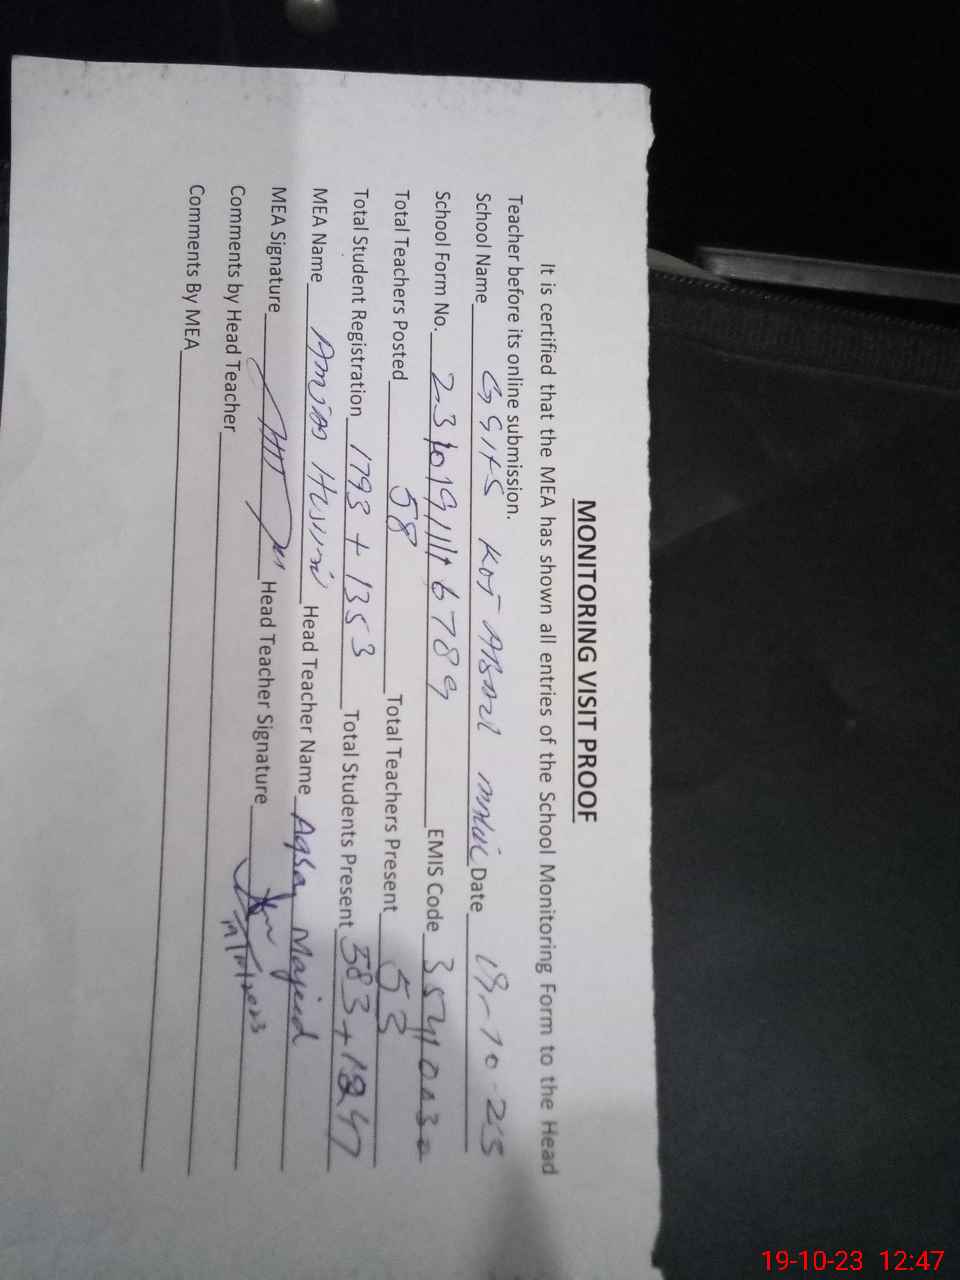 MONITORING VISIT PROOF
It is certified that the MEA has shown all entries of the School Monitoring Form to the Head
Teacher before its online submission.
School Name GGHS KOT Date 19-10-23
School Form No. EMIS Code
Total Teachers Posted 58 Total Teachers Present 53
Total Student Registration 1793 + 1353 Total Students Present
MEA Name Head Teacher Name Aqsa Majeed
MEA Signature Head Teacher Signature
Comments by Head Teacher
Comments By MEA
19-10-23 12:47